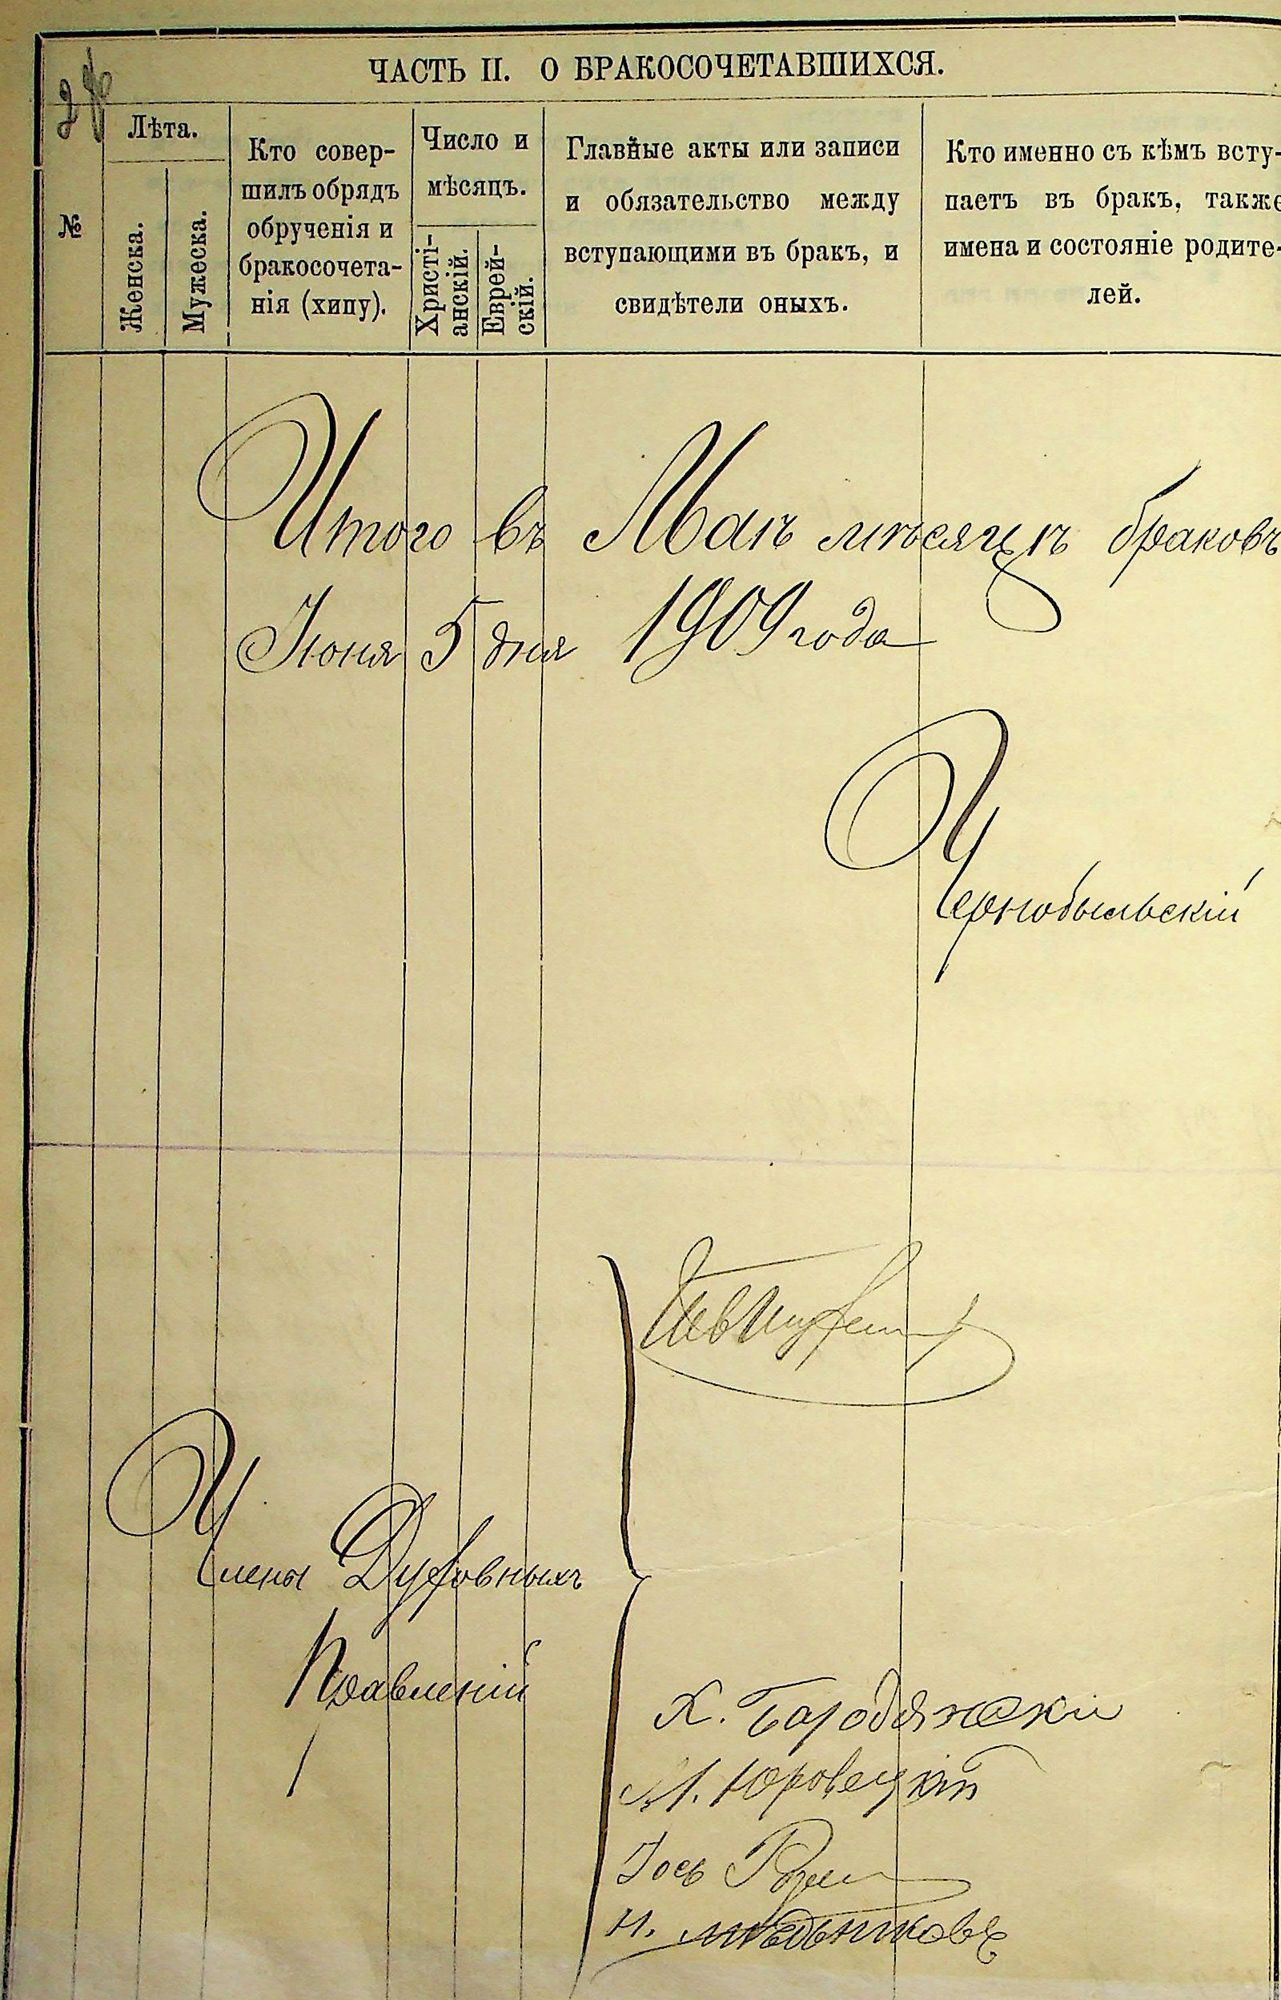 ЧАСТЬ II. О БРАКОСОЧЕТАВШИХСЯ.
№
Лѣта.
Женска.
Мужеска.
Кто совер-
шилъ обрядъ
обрученія и
бракосочета-
нія (хипу).
Число и
мѣсяцъ.
Христі-
анскій.
Еврей-
скій.
Главные акты или записи
и обязательство между
вступающими въ бракъ, и
свидѣтели оныхъ.
Кто именно съ кѣмъ всту-
паетъ въ бракъ, также
имена и состояніе родите-
лей.
Итого въ Маѣ мѣсяцѣ браковъ
Іюня 5 дня 1909 года
Чернобыльскій
Члены Духовныхъ
Правленій
Х. Бородянскі
М. Юровецкій
Іось
Н. Мѣдьниковъ